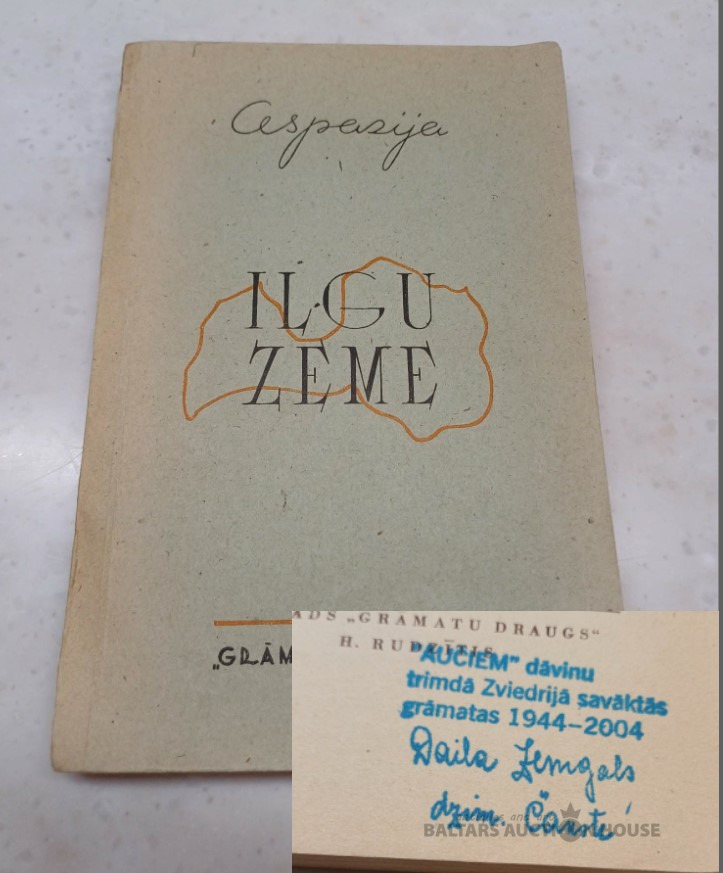 Aspazija
ILGU
ZEME
„GRĀM
ADS „GRAMATU DRAUGS“
H. RUDZĪTIS
"AUCIEM" dāvinu
trimdā Zviedrijā savāktās
grāmatas 1944–2004
Daila Zemgals
dzim.
BALTARS AUCTION HOUSE